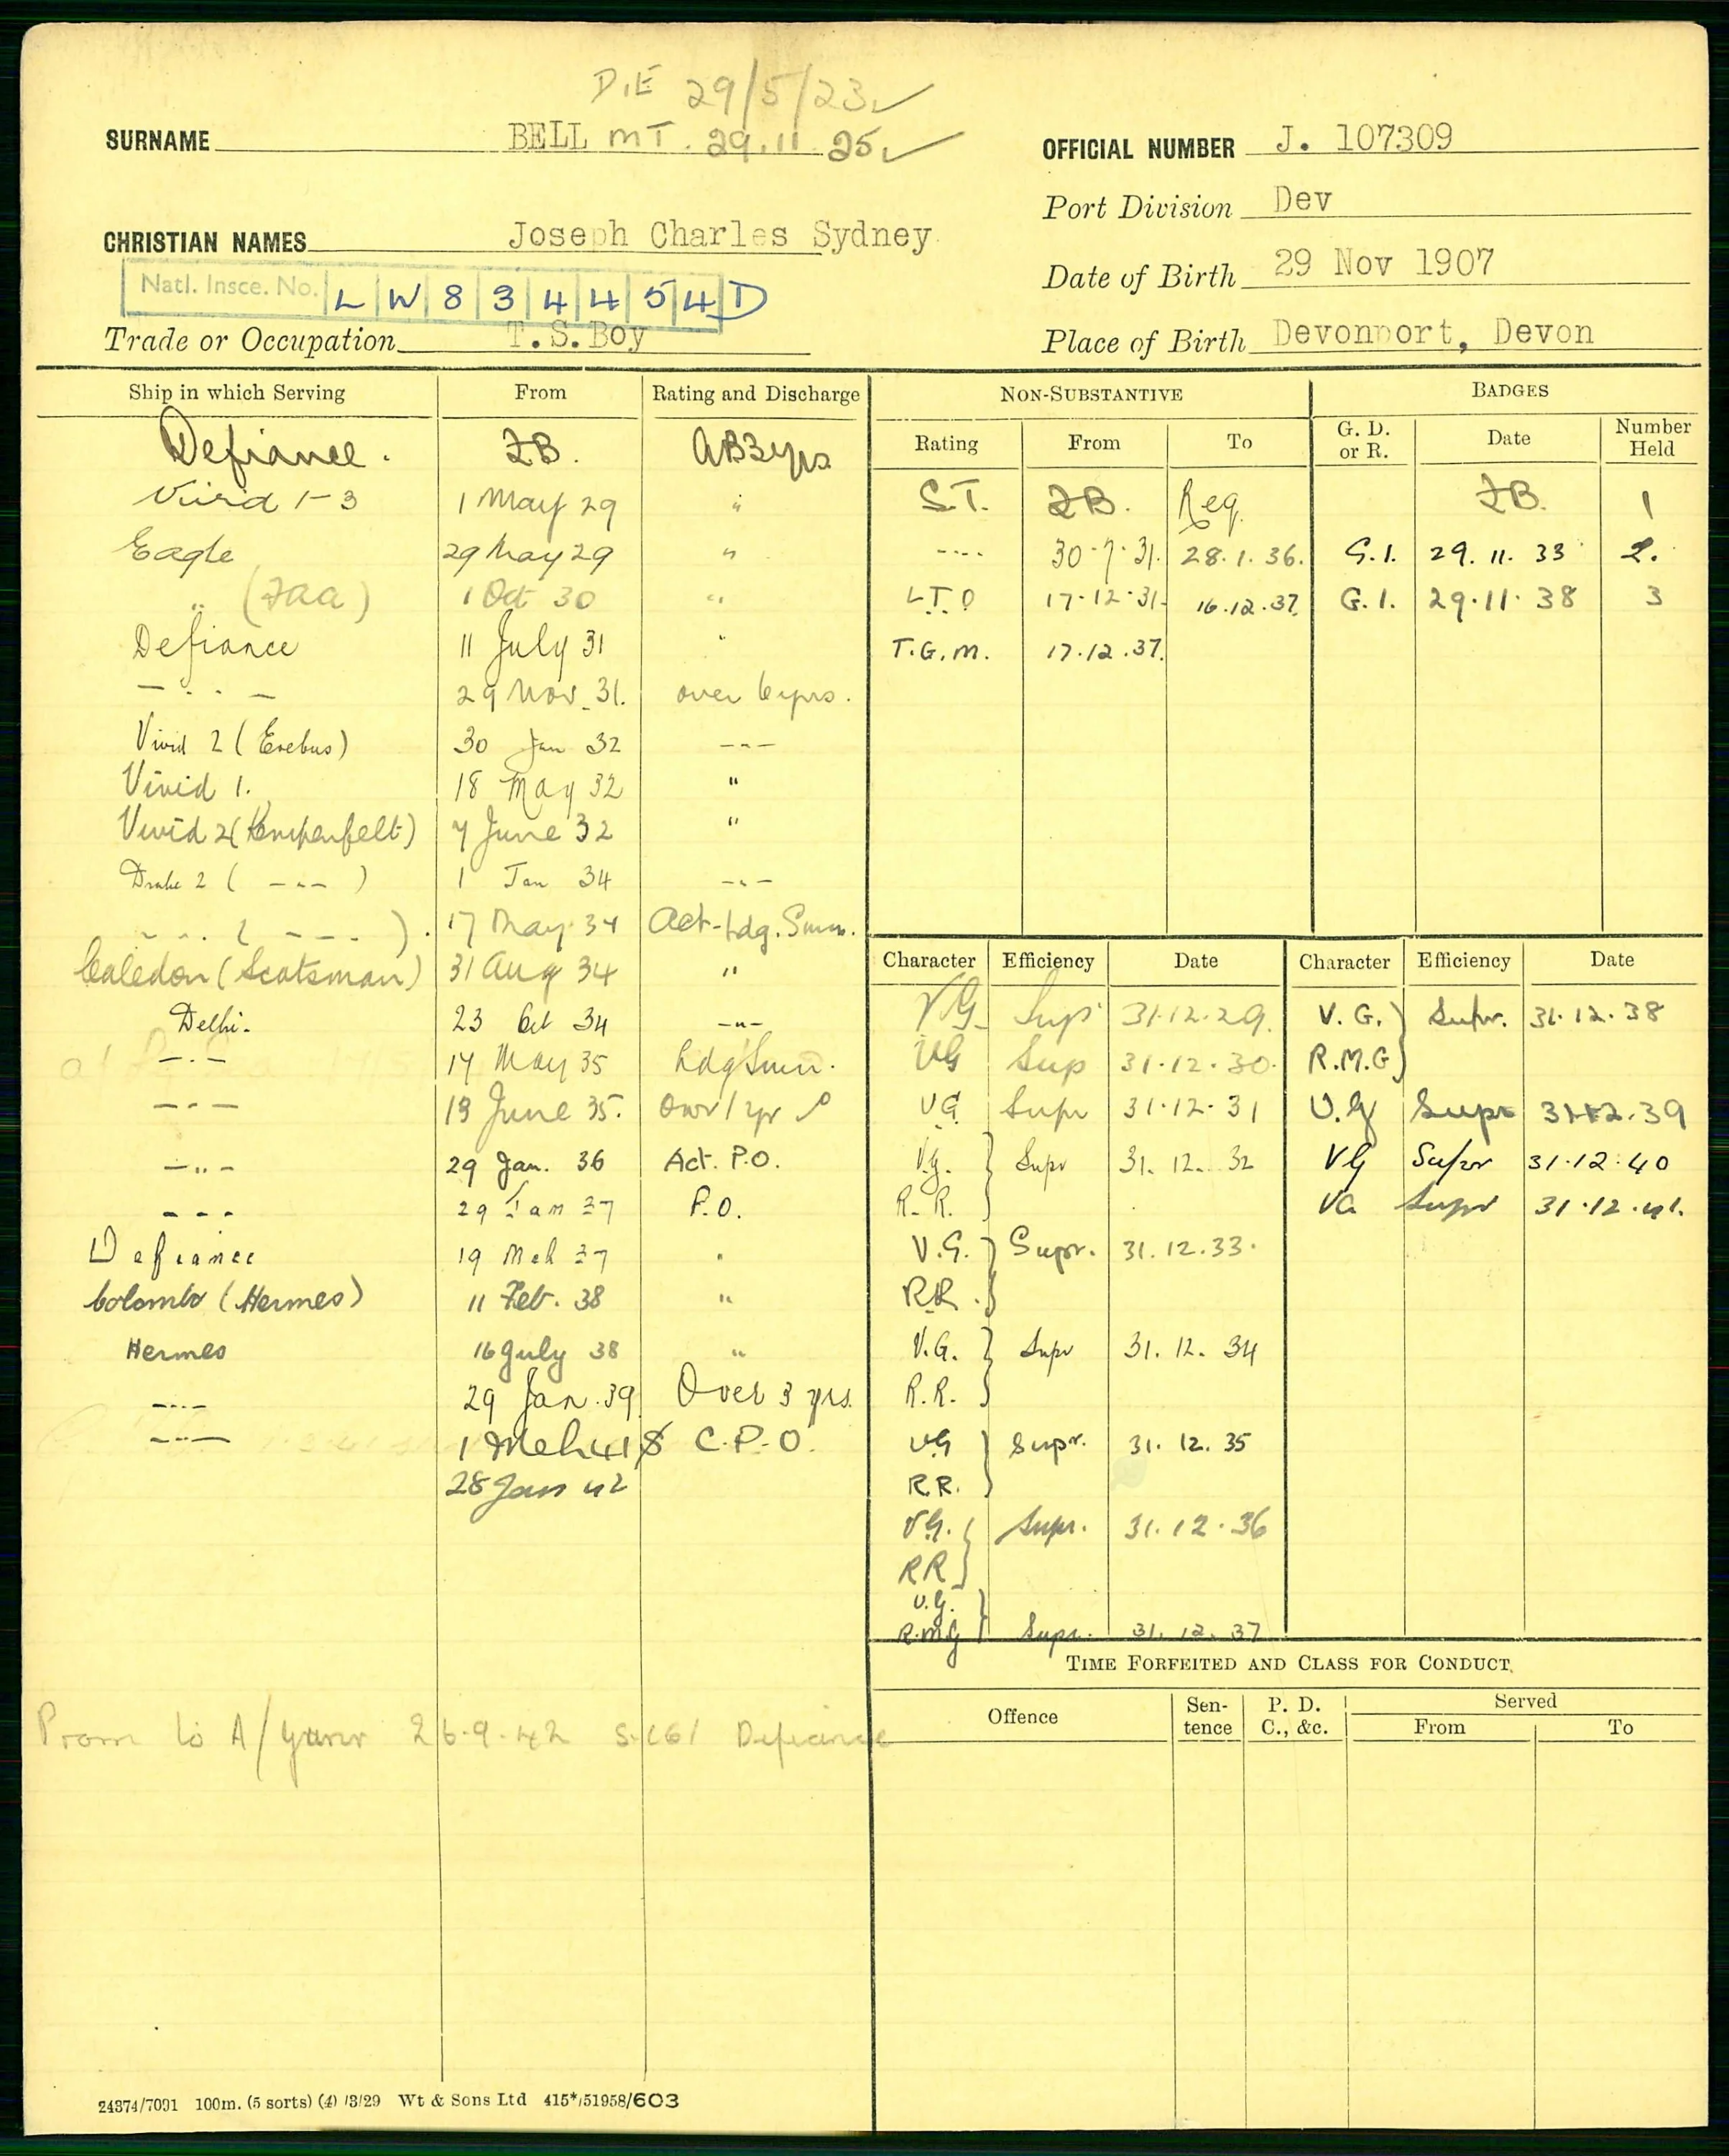 D.E 29/5/23
SURNAME BELL MT. 29.11.25
OFFICIAL NUMBER J. 107309
Port Division Dev
CHRISTIAN NAMES Joseph Charles Sydney
Date of Birth 29 Nov 1907
Natl. Insce. No. L W 8 3 4 4 5 4 D
Trade or Occupation T.S.Boy
Place of Birth Devonport, Devon
Ship in which Serving From Rating and Discharge
Defiance. ZB. AB3yrs
Vivid 1-3 1 May 29 "
Eagle 29 May 29 "
" (FAA) 1 Oct 30 "
Defiance 11 July 31 "
— · · — 29 Nov. 31. over 6yrs.
Vivid 2 (Erebus) 30 Jan 32 -"-
Vivid 1. 18 May 32 "
Vivid 2 (Kempenfelt) 7 June 32 "
Drake 2 ( -"- ) 1 Jan 34 -"-
-"- ( -"- ). 17 May 34 Act-Ldg. Smn.
Caledon (Scotsman) 31 Aug 34 "
Delhi. 23 Oct 34 -"-
-"- 17 May 35 Ldg Smn.
-"- 19 June 35. Over 1 yr
-"- 29 Jan. 36 Act. P.O.
-"- 29 Jan 37 P.O.
Defiance 19 Mch 37 "
Colombo (Hermes) 11 Feb. 38 "
Hermes 16 July 38 "
-"- 29 Jan. 39 Over 3 yrs.
-"- 1 Mch 41 C.P.O.
28 Jan 42
Prom to A/Gunr 26.9.42 Defiance
24374/7091 100m. (5 sorts) (4) /3/29 Wt & Sons Ltd 415*/51958/603
NON-SUBSTANTIVE BADGES
Rating From To G. D. or R. Date Number Held
S.T. ZB. Req. ZB. 1
-"- 30.7.31. 28.1.36. G.1. 29.11.33 2.
L.T.O 17.12.31. 16.12.37. G.1. 29.11.38 3
T.G.M. 17.12.37.
Character Efficiency Date Character Efficiency Date
VG Sup 31.12.29. V.G. Supr. 31.12.38
VG Sup 31.12.30. R.M.G
VG Supr 31.12.31 V.G Supr 31.12.39
V.G. Supr 31.12.32 VG Supr 31.12.40
R.R. VG Supr 31.12.41.
V.G. Supr. 31.12.33.
R.R.
V.G. Supr 31.12.34
R.R.
VG Supr. 31.12.35
R.R.
V.G. Supr. 31.12.36
RR
V.G.
R.M.G Supr. 31.12.37
TIME FORFEITED AND CLASS FOR CONDUCT.
Offence Sentence P. D. C., &c. Served
From To